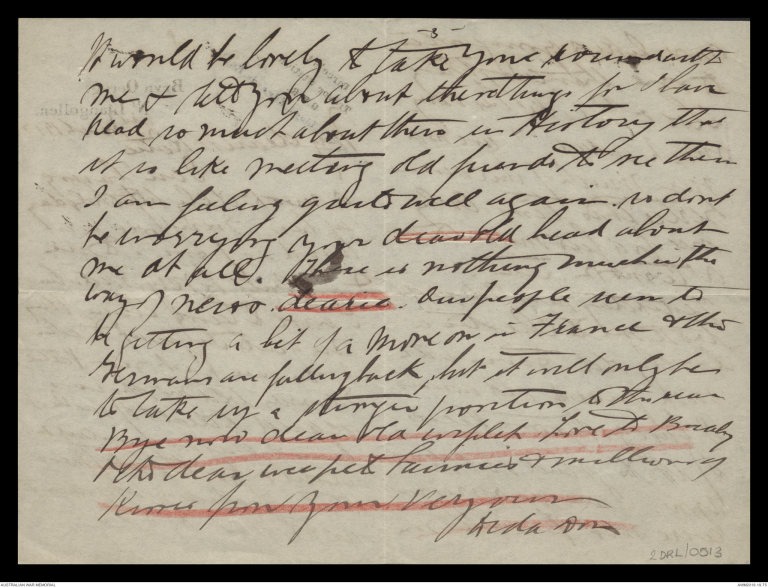 -3-
It would be lovely to take you round with
me & tell you about the old things for I have
read so much about them in History that
it is like meeting old friends to see them
I am feeling quite well again. so dont
be worrying your dear old head about
me at all. There is nothing much in the
way of news dearie. Our people seem to
be getting a bit of a move on in France & the
Germans are falling back, but it will only be
to take up a stronger position to the rear
Bye now dear old wifelet Love to Bucaby
& the dear wee pet lammies & millions of
Kisses from your very own
2DRL/0513
AUSTRALIAN WAR MEMORIAL